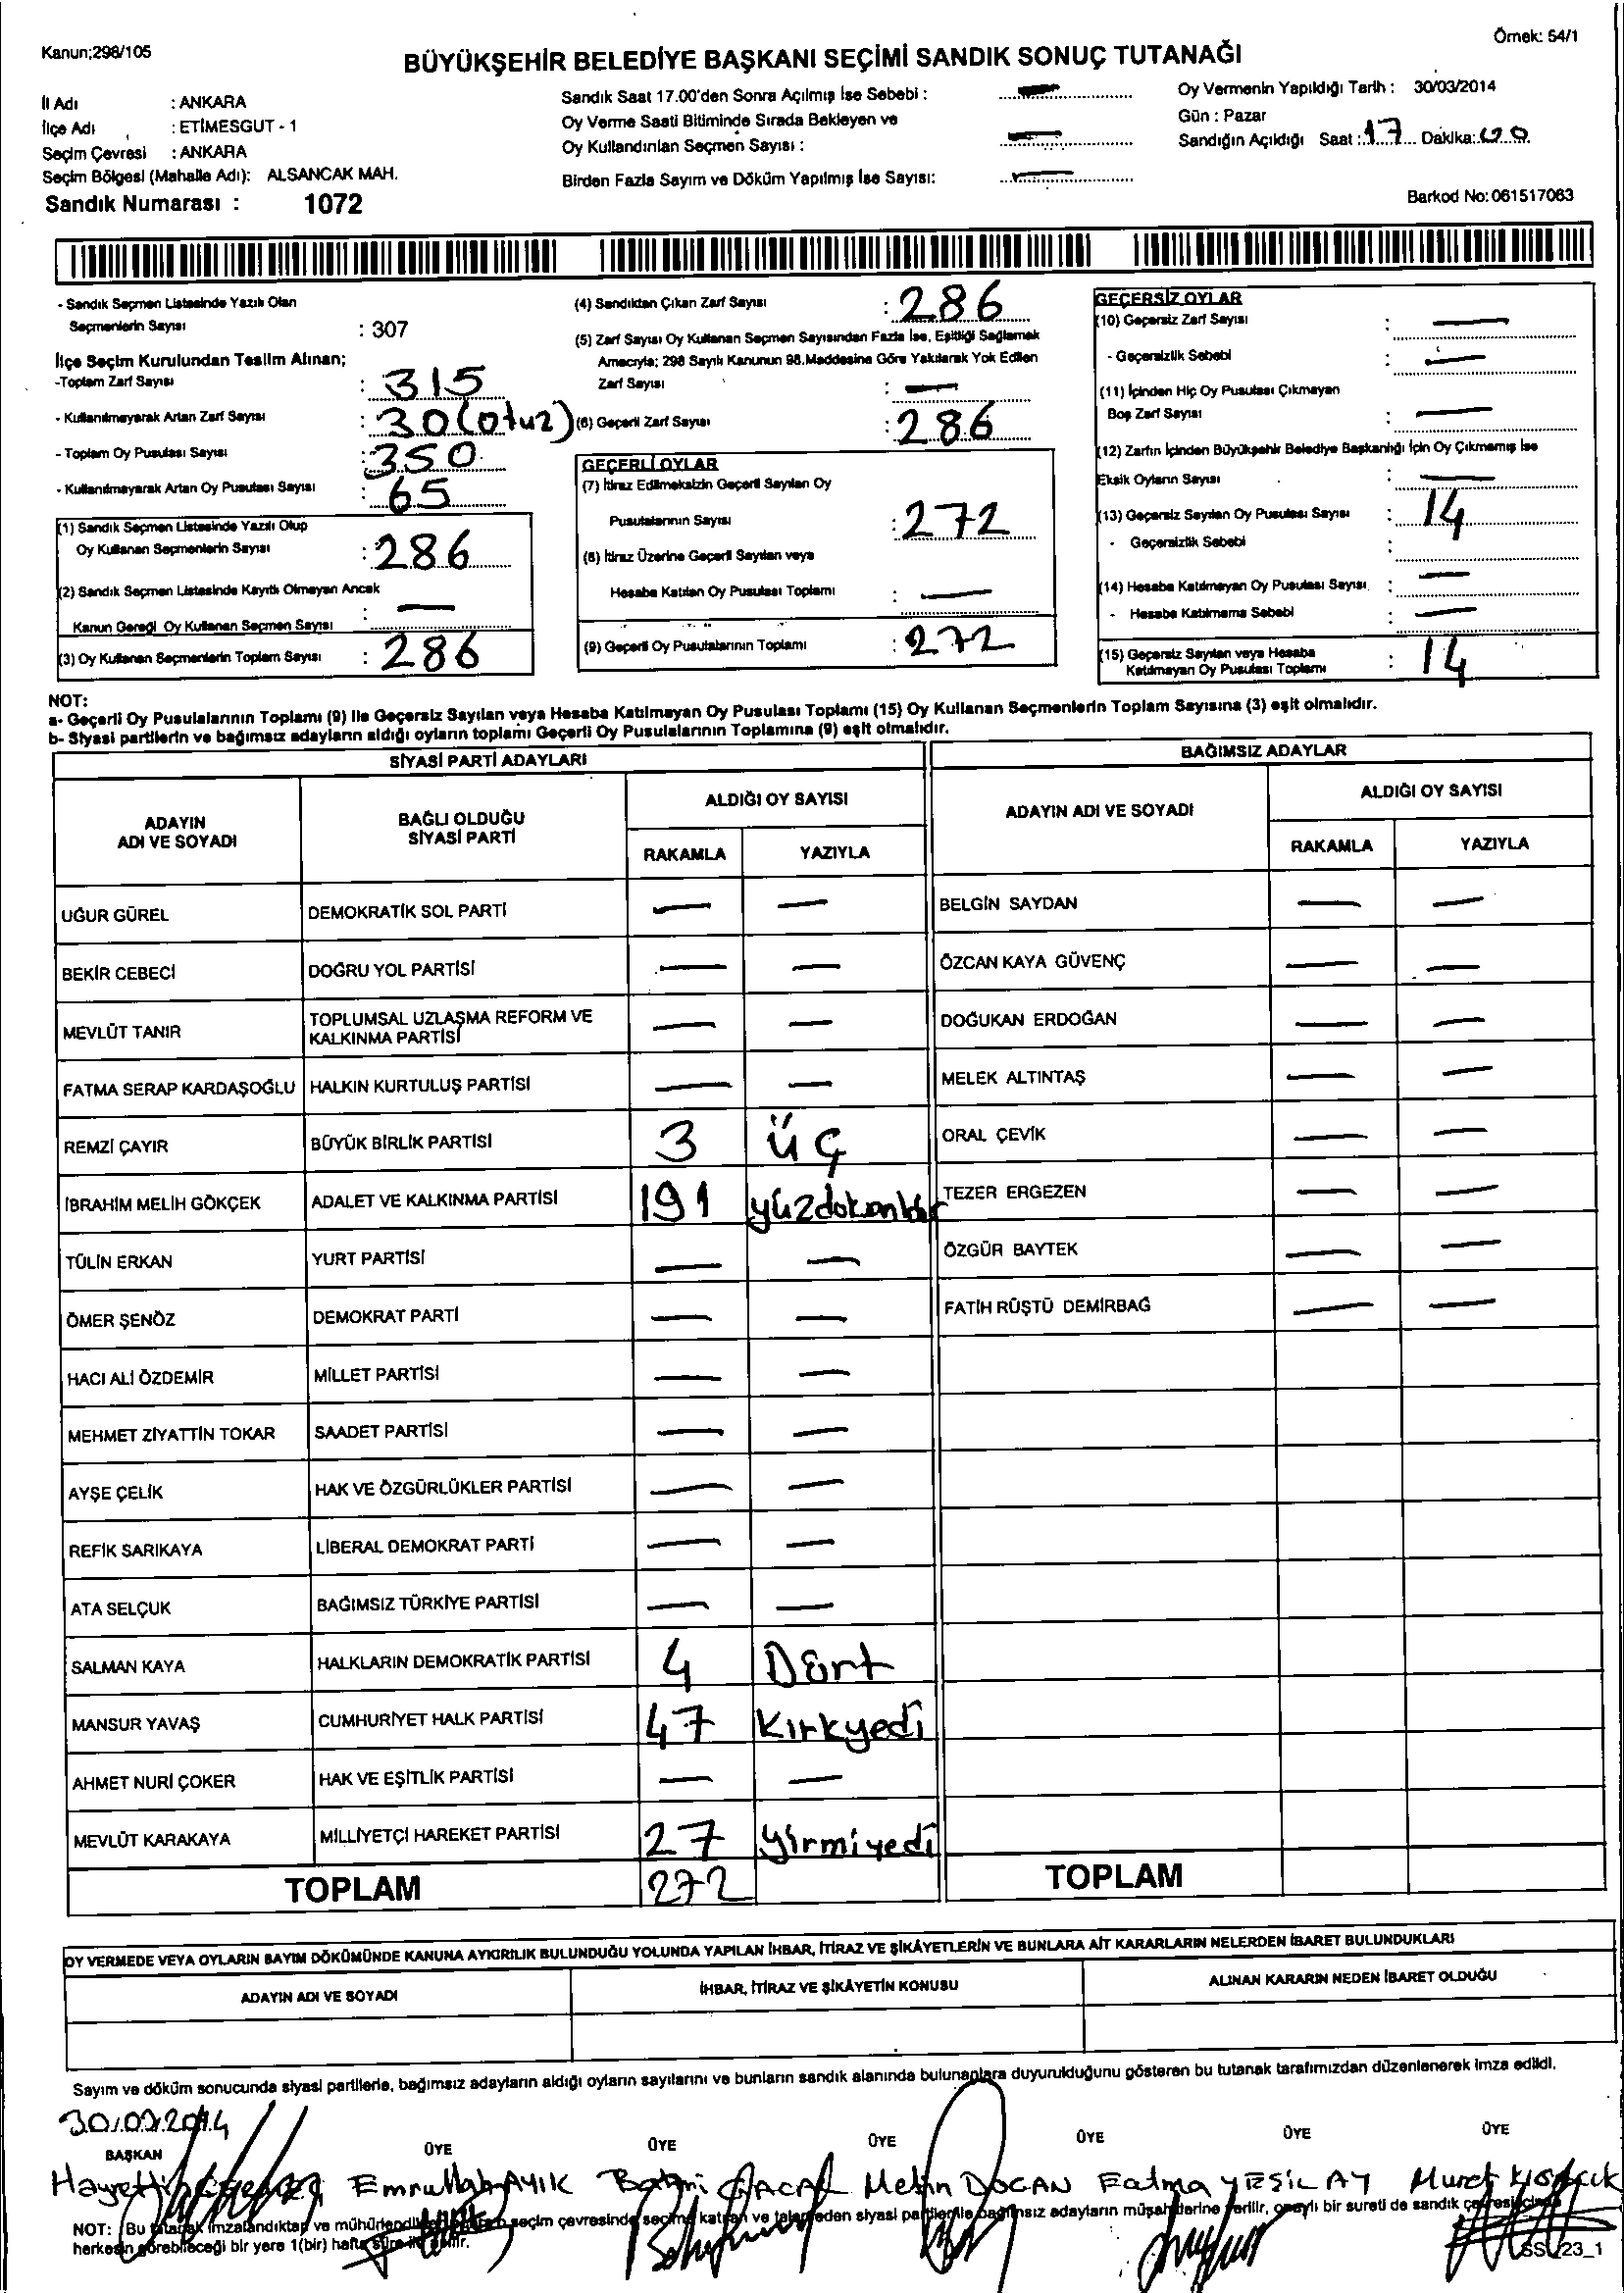 Kanun;298/105
Örnek: 54/1
BÜYÜKŞEHİR BELEDİYE BAŞKANI SEÇİMİ SANDIK SONUÇ TUTANAĞI
İl Adı : ANKARA
İlçe Adı : ETİMESGUT - 1
Seçim Çevresi : ANKARA
Seçim Bölgesi (Mahalle Adı): ALSANCAK MAH.
Sandık Numarası : 1072
Sandık Saat 17.00'den Sonra Açılmış İse Sebebi : —
Oy Verme Saati Bitiminde Sırada Bekleyen ve
Oy Kullandırılan Seçmen Sayısı : —
Birden Fazla Sayım ve Döküm Yapılmış İse Sayısı: —
Oy Vermenin Yapıldığı Tarih : 30/03/2014
Gün : Pazar
Sandığın Açıldığı Saat : 17 Dakika: 00
Barkod No: 061517063
- Sandık Seçmen Listesinde Yazılı Olan
Seçmenlerin Sayısı : 307
İlçe Seçim Kurulundan Teslim Alınan;
-Toplam Zarf Sayısı : 315
- Kullanılmayarak Artan Zarf Sayısı : 30 (otuz)
- Toplam Oy Pusulası Sayısı : 350
- Kullanılmayarak Artan Oy Pusulası Sayısı : 65
(1) Sandık Seçmen Listesinde Yazılı Olup
Oy Kullanan Seçmenlerin Sayısı : 286
(2) Sandık Seçmen Listesinde Kayıtlı Olmayan Ancak
Kanun Gereği Oy Kullanan Seçmen Sayısı : —
(3) Oy Kullanan Seçmenlerin Toplam Sayısı : 286
(4) Sandıktan Çıkan Zarf Sayısı : 286
(5) Zarf Sayısı Oy Kullanan Seçmen Sayısından Fazla İse, Eşitliği Sağlamak
Amacıyla; 298 Sayılı Kanunun 98.Maddesine Göre Yakılarak Yok Edilen
Zarf Sayısı : —
(6) Geçerli Zarf Sayısı : 286
GEÇERLİ OYLAR
(7) İtiraz Edilmeksizin Geçerli Sayılan Oy
Pusulalarının Sayısı : 272
(8) İtiraz Üzerine Geçerli Sayılan veya
Hesaba Katılan Oy Pusulası Toplamı : —
(9) Geçerli Oy Pusulalarının Toplamı : 272
GEÇERSİZ OYLAR
(10) Geçersiz Zarf Sayısı : —
- Geçersizlik Sebebi : —
(11) İçinden Hiç Oy Pusulası Çıkmayan
Boş Zarf Sayısı : —
(12) Zarfın İçinden Büyükşehir Belediye Başkanlığı İçin Oy Çıkmamış İse
Eksik Oyların Sayısı : —
(13) Geçersiz Sayılan Oy Pusulası Sayısı : 14
- Geçersizlik Sebebi :
(14) Hesaba Katılmayan Oy Pusulası Sayısı : —
- Hesaba Katılmama Sebebi : —
(15) Geçersiz Sayılan veya Hesaba
Katılmayan Oy Pusulası Toplamı : 14
NOT:
a- Geçerli Oy Pusulalarının Toplamı (9) ile Geçersiz Sayılan veya Hesaba Katılmayan Oy Pusulası Toplamı (15) Oy Kullanan Seçmenlerin Toplam Sayısına (3) eşit olmalıdır.
b- Siyasi partilerin ve bağımsız adayların aldığı oyların toplamı Geçerli Oy Pusulalarının Toplamına (9) eşit olmalıdır.
SİYASİ PARTİ ADAYLARI
ADAYIN
ADI VE SOYADI
BAĞLI OLDUĞU
SİYASİ PARTİ
ALDIĞI OY SAYISI
RAKAMLA YAZIYLA
UĞUR GÜREL DEMOKRATİK SOL PARTİ — —
BEKİR CEBECİ DOĞRU YOL PARTİSİ — —
MEVLÜT TANIR TOPLUMSAL UZLAŞMA REFORM VE
KALKINMA PARTİSİ — —
FATMA SERAP KARDAŞOĞLU HALKIN KURTULUŞ PARTİSİ — —
REMZİ ÇAYIR BÜYÜK BİRLİK PARTİSİ 3 üç
İBRAHİM MELİH GÖKÇEK ADALET VE KALKINMA PARTİSİ 191 yüzdoksanbir
TÜLİN ERKAN YURT PARTİSİ — —
ÖMER ŞENÖZ DEMOKRAT PARTİ — —
HACI ALİ ÖZDEMİR MİLLET PARTİSİ — —
MEHMET ZİYATTİN TOKAR SAADET PARTİSİ — —
AYŞE ÇELİK HAK VE ÖZGÜRLÜKLER PARTİSİ — —
REFİK SARIKAYA LİBERAL DEMOKRAT PARTİ — —
ATA SELÇUK BAĞIMSIZ TÜRKİYE PARTİSİ — —
SALMAN KAYA HALKLARIN DEMOKRATİK PARTİSİ 4 Dört
MANSUR YAVAŞ CUMHURİYET HALK PARTİSİ 47 Kırkyedi
AHMET NURİ ÇOKER HAK VE EŞİTLİK PARTİSİ — —
MEVLÜT KARAKAYA MİLLİYETÇİ HAREKET PARTİSİ 27 yirmiyedi
TOPLAM 272
BAĞIMSIZ ADAYLAR
ADAYIN ADI VE SOYADI
ALDIĞI OY SAYISI
RAKAMLA YAZIYLA
BELGİN SAYDAN — —
ÖZCAN KAYA GÜVENÇ — —
DOĞUKAN ERDOĞAN — —
MELEK ALTINTAŞ — —
ORAL ÇEVİK — —
TEZER ERGEZEN — —
ÖZGÜR BAYTEK — —
FATİH RÜŞTÜ DEMİRBAĞ — —
TOPLAM
OY VERMEDE VEYA OYLARIN SAYIM DÖKÜMÜNDE KANUNA AYKIRILIK BULUNDUĞU YOLUNDA YAPILAN İHBAR, İTİRAZ VE ŞİKÂYETLERİN VE BUNLARA AİT KARARLARIN NELERDEN İBARET BULUNDUKLARI
ADAYIN ADI VE SOYADI
İHBAR, İTİRAZ VE ŞİKÂYETİN KONUSU
ALINAN KARARIN NEDEN İBARET OLDUĞU
Sayım ve döküm sonucunda siyasi partilerle, bağımsız adayların aldığı oyların sayılarını ve bunların sandık alanında bulunanlara duyurulduğunu gösteren bu tutanak tarafımızdan düzenlenerek imza edildi.
30.03.2014
BAŞKAN ÜYE ÜYE ÜYE ÜYE ÜYE ÜYE
Hayrettin Emrullah AYIK Metin DOĞAN Fatma YEŞİLAY Murat
NOT: Bu tutanak imzalandıktan ve mühürlendikten seçim çevresinde seçime katılan ve talep eden siyasi partiler ile bağımsız adayların müşahitlerine verilir, onaylı bir sureti de sandık çevresi içinde
herkesin görebileceği bir yere 1(bir) hafta süre ile asılır.